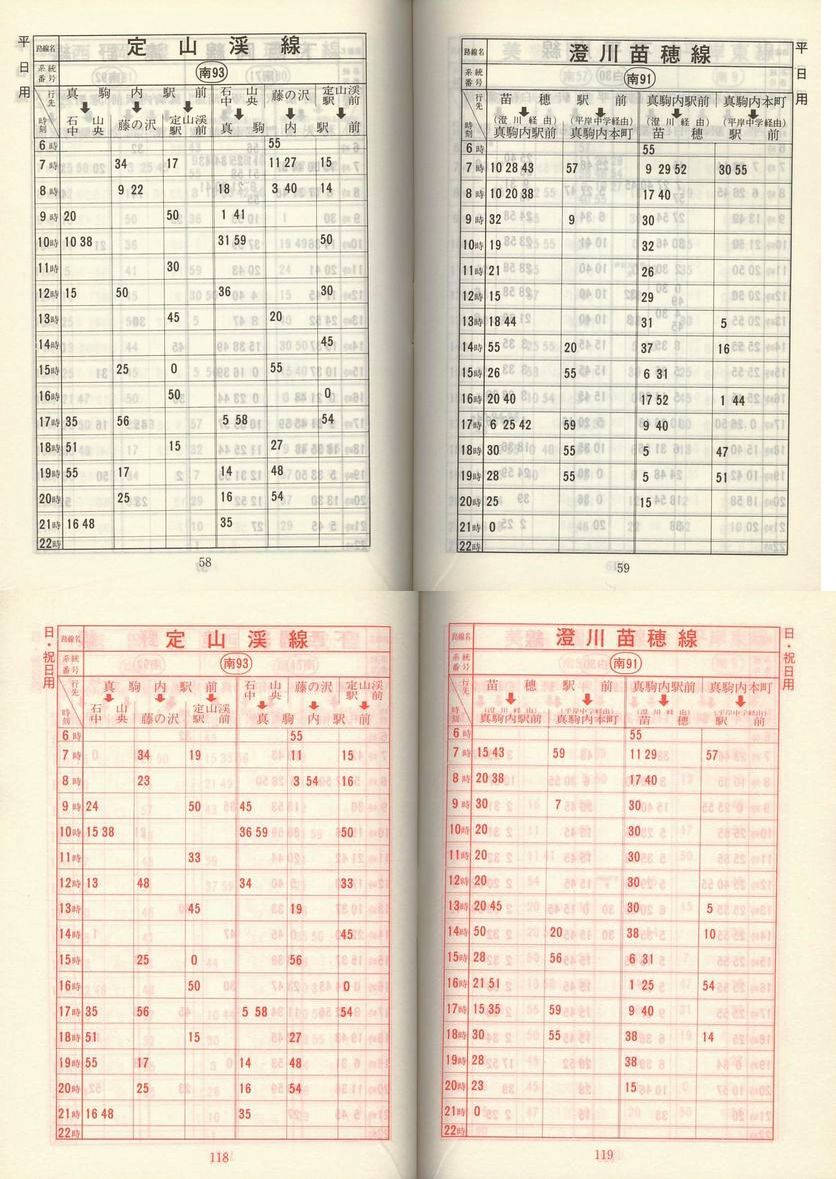 平日用
路線名 定山渓線
系統番号 南93
行先 時刻
真駒内駅前 石山中央 藤の沢 定山渓
石山中央 藤の沢 定山渓駅前 真駒内駅前
6時 55
7時 34 17 11 27 15
8時 9 22 18 3 40 14
9時 20 50 1 41
10時 10 38 31 59 50
11時 30
12時 15 50 36 30
13時 45 20
14時 45
15時 25 0 55
16時 50 0
17時 35 56 5 58 54
18時 51 15 27
19時 55 17 14 48
20時 25 16 54
21時 16 48 35
22時
58
平日用
路線名 澄川苗穂線
系統番号 南91
行先 時刻
苗穂駅前 真駒内駅前 真駒内本町
(澄川経由) (平岸中学経由) (澄川経由) (平岸中学経由)
真駒内駅前 真駒内本町 苗穂駅前
6時 55
7時 10 28 43 57 9 29 52 30 55
8時 10 20 38 17 40
9時 32 9 30
10時 19 32
11時 21 26
12時 15 29
13時 18 44 31 5
14時 55 20 37 16
15時 26 55 6 31
16時 20 40 17 52 1 44
17時 6 25 42 59 9 40
18時 30 55 5 47
19時 28 55 5 51
20時 25 15
21時 0
22時
59
日・祝日用
路線名 定山渓線
系統番号 南93
行先 時刻
真駒内駅前 石山中央 藤の沢 定山渓
石山中央 藤の沢 定山渓駅前 真駒内駅前
6時 55
7時 34 19 11 15
8時 23 3 54 16
9時 24 50 45
10時 15 38 36 59 50
11時 33
12時 13 48 34 33
13時 45 19
14時 45
15時 25 0 56
16時 50 0
17時 35 56 5 58 54
18時 51 15 27
19時 55 17 14 48
20時 25 16 54
21時 16 48 35
22時
118
日・祝日用
路線名 澄川苗穂線
系統番号 南91
行先 時刻
苗穂駅前 真駒内駅前 真駒内本町
(澄川経由) (平岸中学経由) (澄川経由) (平岸中学経由)
真駒内駅前 真駒内本町 苗穂駅前
6時 55
7時 15 43 59 11 29 57
8時 20 38 17 40
9時 30 7 30
10時 20 30
11時 20 30
12時 20 30
13時 20 45 30 5
14時 50 20 38 10
15時 28 56 6 31
16時 21 51 1 25 54
17時 15 35 59 9 40
18時 30 55 38 14
19時 28 38
20時 23 15
21時 0
22時
119